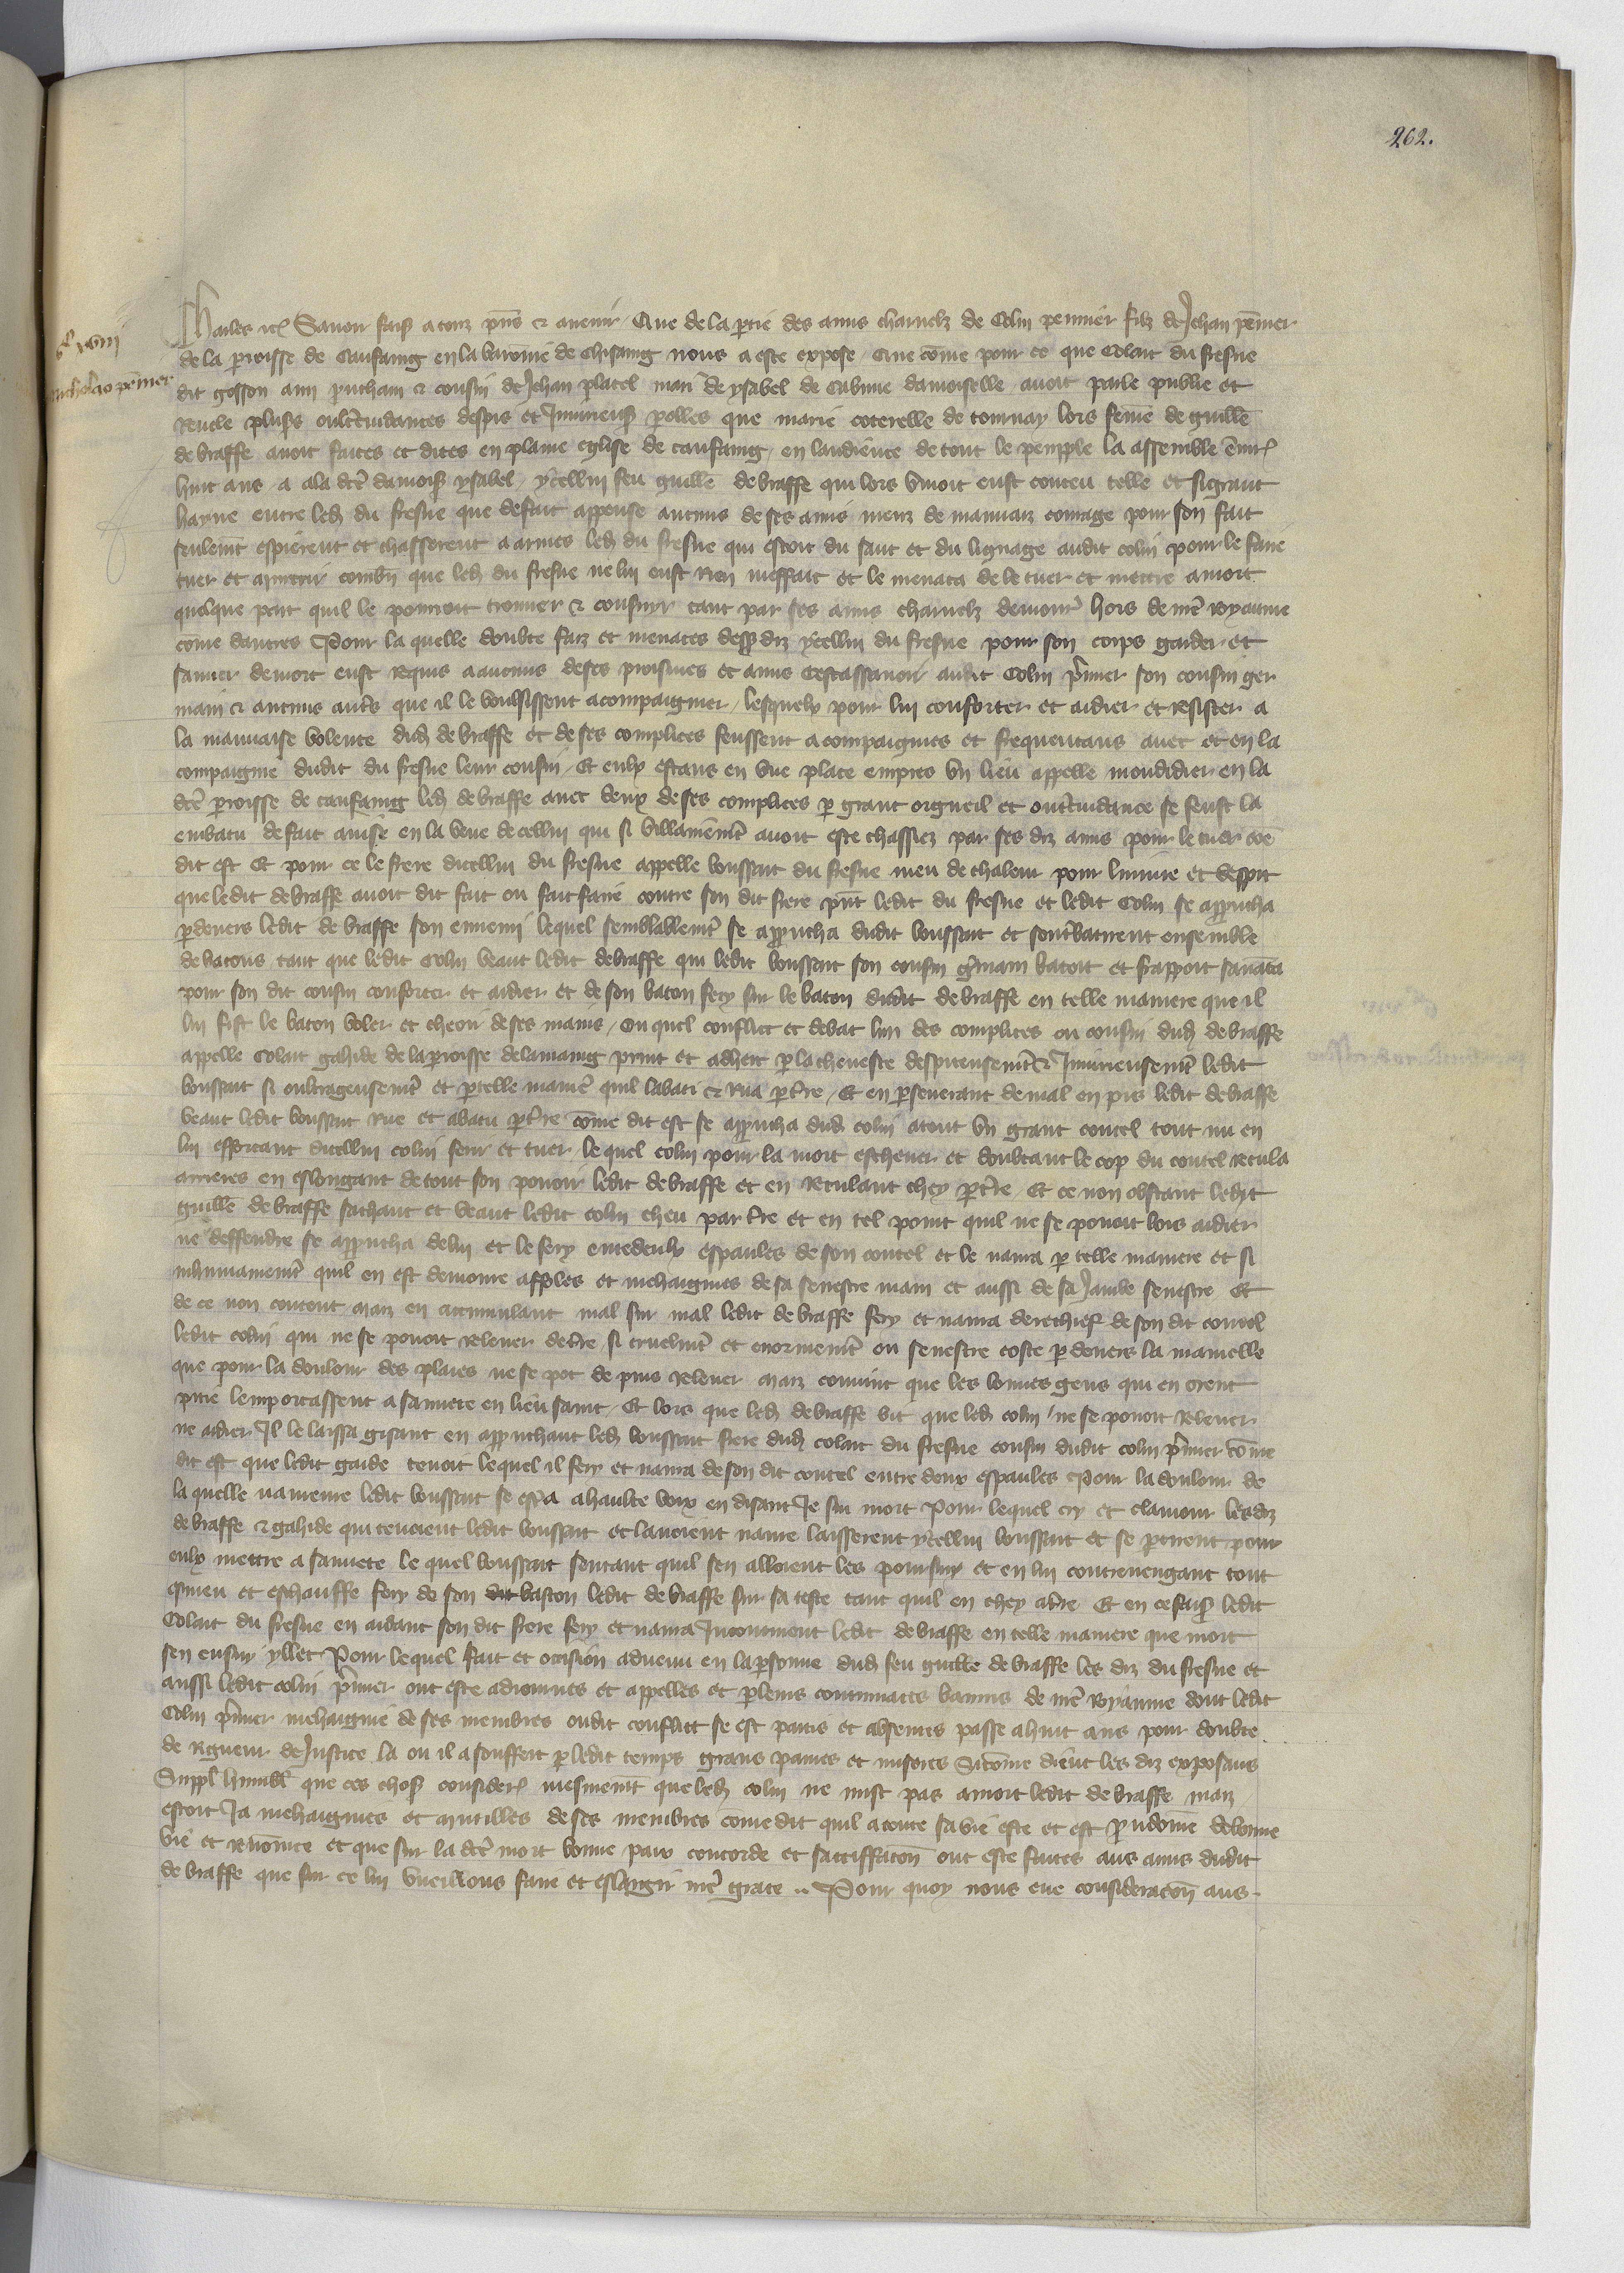 262.
Charles etc. Savoir fais a touz pns & avenir Que de la ptie des amis charnelz de Colin pennier filz de Jehan pennier
de la parroisse de Camfaing en la baronnie de Chisoing nous a este expose que cōme pour ce que Colart du fresne
dit gosson ami prouchain & cousin de Jehan platel mari de ysabel de damoiselle avoit parle publie et
revele plus oultrecuidances despis et Injurieuses polles que marie coterelle de tournay lors feme de guille
de braffe avoit faites et dites en plaine eglise de camfaing en laudience de tout le peupple la assemble
huit ans a a la dce damois ysabel ycellui feu guille de braffe qui lors vivoit eust conceu telle et si grant
hayne entre led du fresne que de fait appense aucuns de ses amis meuz de mauvaiz courage pour son fait
seulemt espierent et chasserent a armes led du fresne qui estoit du sanc et du lignage audit colin pour le faire
tuer et combn que led du fresne ne lui eust rien meffait et le menaca de le tuer et mettre a mort
quelque part quil le pourroit trouver & consuivir tant par ses amis charnelz demour hors de nre Royaume
cōme dautres Pour la quelle doubte faiz et menaces dessdiz ycellui du fresne pour son corps garder et
sauver de mort eust requis a aucuns de ses proismes et amis Cestassavoir audit Colin pennier son cousin ger
main & aucuns autrs que il le voulsissent acompaignier lesquelx pour lui conforter et aidier et resister a
la mauvaise volente dud de braffe et de ses complices feussent acompaignies et frequentans avec et en la
compaignie dudit du fresne leur cousin Et eulx estans en une place empres un lieu appelle mondidier en la
dce parroisse de camfaing led de braffe avec deux de ses complices p grant orgueil et oultrecuidance se feust la
embatu de fait avise en la veue de cellui qui si villainemt avoit este chassiez par ses diz amis pour le tuer cōe
dit est Et pour ce le frere dicellui du fresne appelle boussart du fresne meu de chaleur pour linjure et despit
que ledit de braffe avoit dit fait ou fait faire contre son dit frere pnt ledit du fresne et ledit Colin se approucha
p devers ledit de braffe son ennemi lequel semblablemt se approucha dudit boussart et sentrebatirent ensemble
de batons tant que ledit Colin veant ledit de braffe qui ledit boussart son cousin gmain batoit et frappoit savanca
pour son dit cousin conforter et aidier et de son baton fery sur le baton dudit de braffe en telle maniere que il
lui fist le baton voler et cheoir de ses mains Ou quel conflict et debat lun des complices ou cousin dud de braffe
appelle Colart gahide de la parroisse de lamaing print et adhert p la chevesce despiteusemt & Injurieusemt ledit
boussart si oultrageusemt et p telle manie quil labati & rua p tre Et en pseverant de mal en pis ledit de braffe
veant ledit boussart rue et abatu p tre cōme dit est se approucha dud colin a tout un grant coutel tout nu en
lui efforcant dicellui colin ferir et tuer le quel colin pour la mort eschever et doubtant le cop du coutel recula
arrieres en eslongant de tout son povoir ledit de braffe et en reculant chey p tre Et ce non obstant ledit
guille de braffe sachant et veant ledit colin cheu par tre et en tel point quil ne se povoit lors aidier
ne deffendre se approucha de lui et le fery entredeulx espaules de son coutel et le navra p telle maniere et si
inhumainemt quil en est demoure affoles et mehaignies de sa senestre main et aussi de sa Jambe senestre Et
de ce non content maiz en accumulant mal sur mal ledit de braffe fery et navra derechief de son dit coutel
ledit colin qui ne se povoit relever de tre si cruelmt et enormemt ou senestre coste p devers la mamelle
que pour la douleur des plaies ne se pot de puis relever maiz convint que les bonnes gens qui en orent
pitie lemportassent a sauvete en lieu saint Et lors que led de braffe vit que led colin ne se povoit relever
ne aidier Il le laissa gisant en approuchant led boussart frere dud colart du fresne cousin dudit colin pmier cōme
dit est que ledit gaide tenoit lequel il fery et navra de son dit coutel entre deux espaules Pour la douleur de
la quelle navreure ledit boussart se escria a haulte voix en disant Je sui mort Pour lequel cry et clameur lesdiz
de braffe & gahide qui tenoient ledit boussart et lavoient navre laisserent ycellui boussart et se ptirent pour
eulx mettre a sauvete le quel boussart sentant quil sen alloient les poursuy et en lui contrevengant tout
esmeu et eschauffe fery de son dit baston ledit de braffe sur sa teste tant quil en chey a tre Et en ce fais ledit
Colart du fresne en aidant son dit frere fery et navra Incontinent ledit de braffe en telle maniere que mort
sen ensuy yllec Pour lequel fait et occision advenu en la psonne dud feu guille de braffe les diz du fresne et
aussi ledit colin pmier ont este adiournes et appelles et p leurs contumaces bannis de nre Royaume dont ledit
Colin pmier mehaignie de ses membres oudit conflict se est partis et absentes passe a huit ans pour doubte
de rigueur de Justice la ou il a souffert p ledit temps grans paines et miseres Si cōme dient les diz exposans
Suppl humbl que ces chos consider mesment que led colin ne mist pas a mort ledit de braffe maiz
estoit Ja mehaignies et mutilles de ses membres cōme dit quil a toute sa vie este et est preudōme de bonne
vie et renōmee et que sur la dce mort bonne paix concorde et sattiffacōn ont este faites aus amis dudit
de braffe que sur ce lui vueillons faire et eslargir nre grace Pour quoy nous eue consideracōn aus